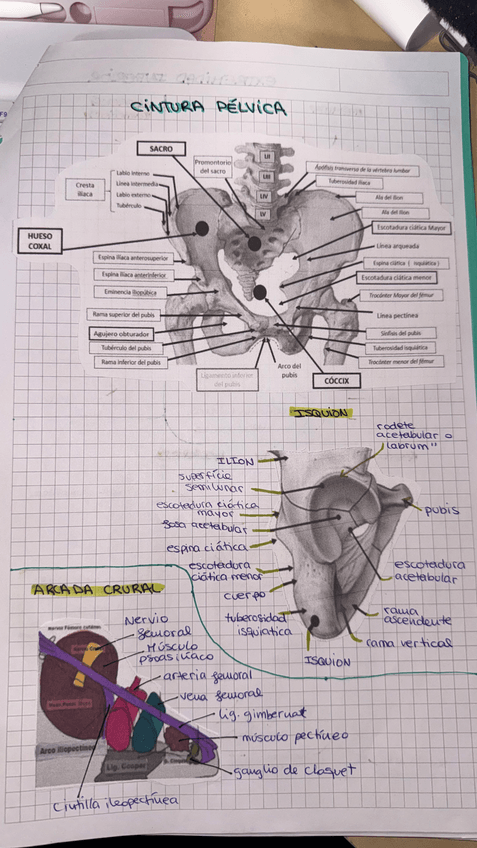 CINTURA PÉLVICA
SACRO
Promontorio
del sacro
LII
LIII
LIV
LV
Apófisis transversa de la vértebra lumbar
Tuberosidad ilíaca
Ala del Ilion
Ala del Ilion
Escotadura ciática Mayor
Línea arqueada
Espina ciática ( isquiática )
Escotadura ciática menor
Trocánter Mayor del fémur
Línea pectínea
Sínfisis del pubis
Tuberosidad isquiática
Trocánter menor del fémur
Cresta
ilíaca
Labio Interno
Línea intermedia
Labio externo
Tubérculo
HUESO
COXAL
Espina ilíaca anterosuperior
Espina ilíaca anteroinferior
Eminencia iliopúbica
Rama superior del pubis
Agujero obturador
Tubérculo del pubis
Rama inferior del pubis
Ligamento inferior
del pubis
Arco del
pubis
CÓCCIX
ISQUION
rodete
acetabular o
labrum"
ILION
superficie
semilunar
escotadura ciática
mayor
fosa acetabular
espina ciática
escotadura
ciática menor
cuerpo
tuberosidad
isquiatica
pubis
escotadura
acetabular
rama
ascendente
rama vertical
ISQUION
ARCADA CRURAL
Nervio
femoral
Músculo
psoasiliaco
arteria femoral
vena femoral
Lig. gimbernat
músculo pectineo
ganglio de cloquet
Arco iliopectineo
Lig. Cooper
Cintilla ileopectínea